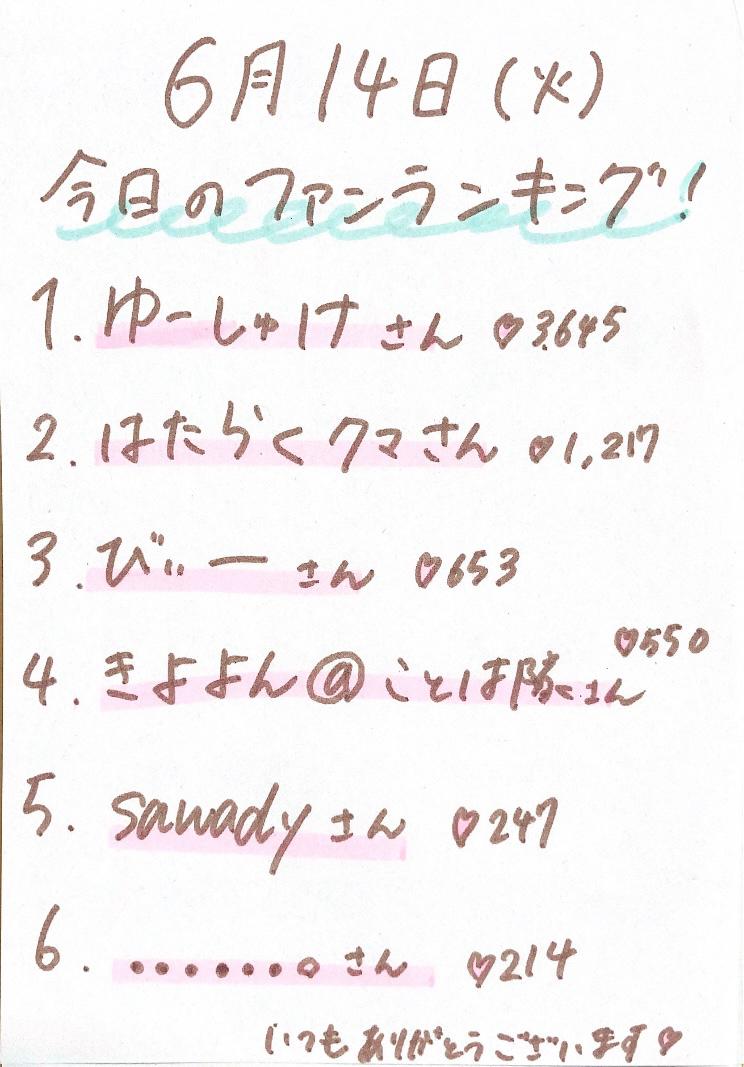 6月14日(火)
今日のファンランキング!
1. ゆーしゅけさん ♡3,645
2. はたらくクマさん ♡1,217
3. びぃーさん ♡653
4. きよよん@ことは隊さん ♡550
5. sawadyさん ♡247
6. ●●●●●●●○さん ♡214
いつもありがとうございます♡